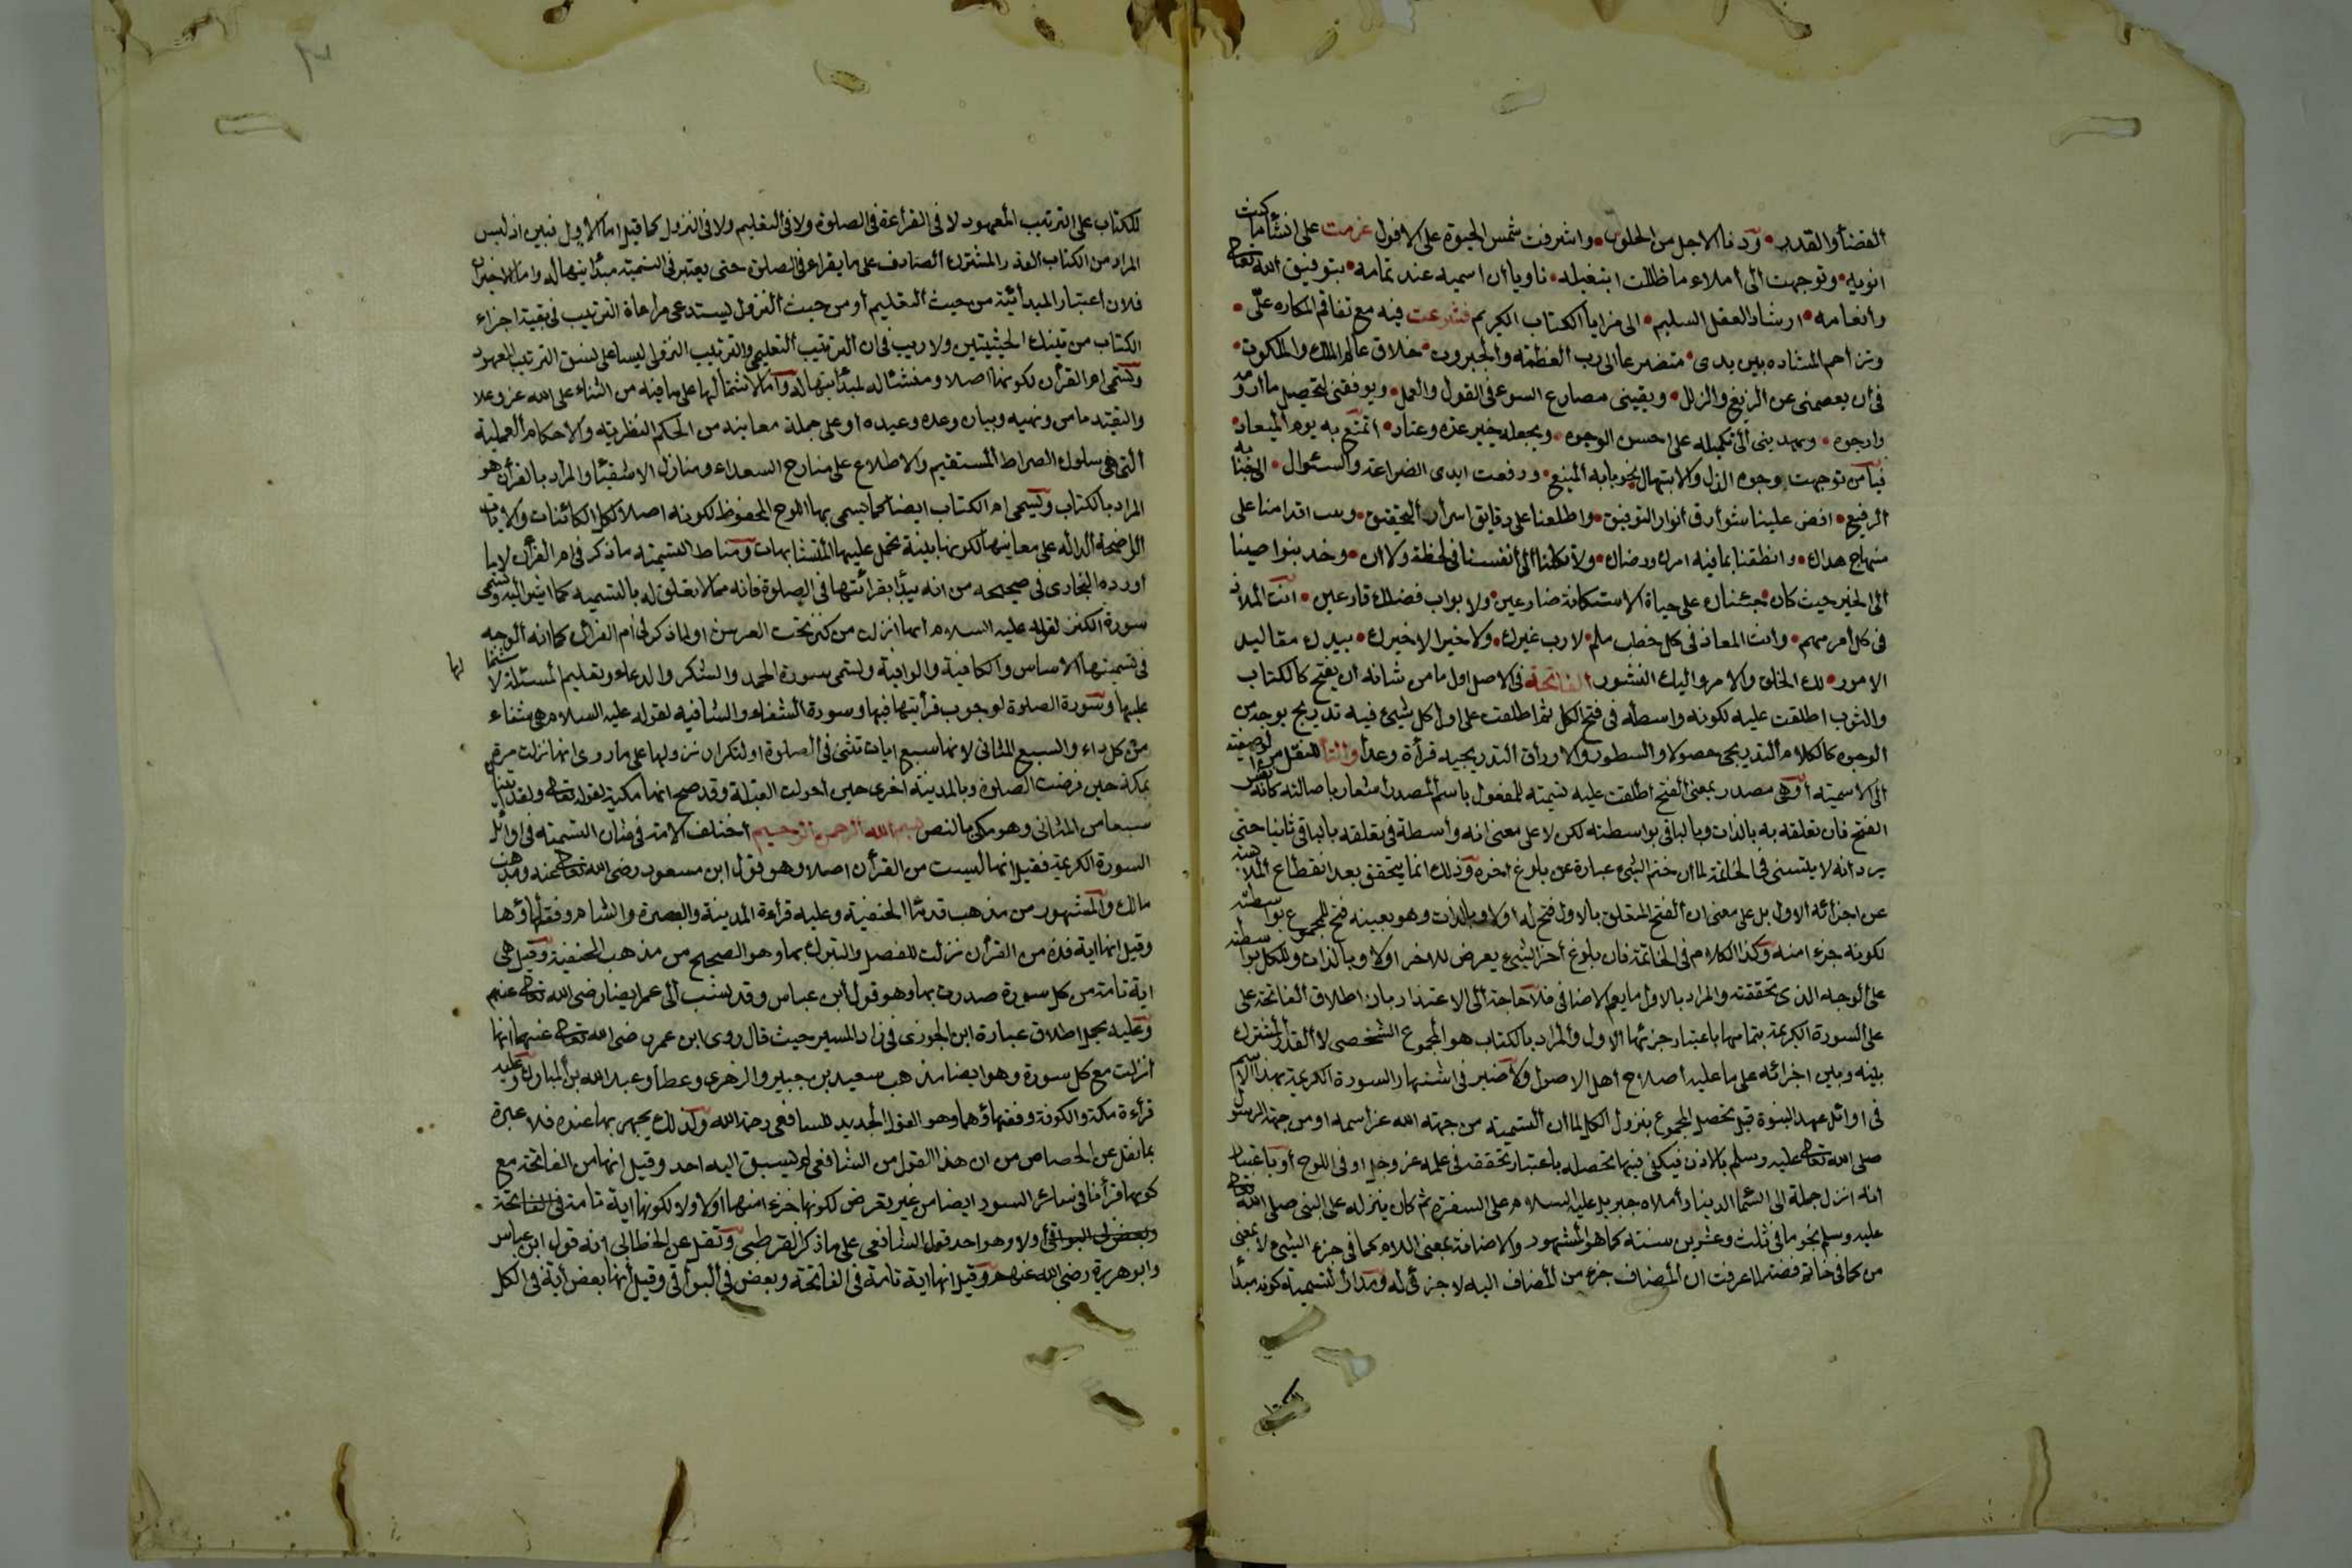 القضأ والقدر • ودنا الاجل من الحلول • واشرفت شمس الحيوة على الافول عزمت على انشأ ما كنت
انويه • وتوجهت الى املاء ما ظللت ابتغيله • ناويا ان اسميه عند تمامه • بتوفيق الله تعالى
وانعامه • ارشاد العقل السليم • الى مزايا الكتاب الكريم فشرعت فيه مع تفاقم المكاره علّى •
وتزاحم المشاده بين يدى • متضرعا الى رب العظمة والجبروت • خلاق عالم الملك والملكوت •
فى أن يعصمنى عن الزيغ والزلل • ويقينى مصارع السوء فى القول والعمل • ويوفقنى لتحصيل ما اروم
وارجوه • ويهدينى الى تكميله على احسن الوجوه • ويجعله خير عدة وعتاد • اتمتع به يوم الميعاد •
فيامن توجهت وجوه الذل والابتهال نحو بابه المنيع • ورفعت ايدى الضراعة والسئوال • الى جنابه
الرفيع • افض علينا شوأرق أنوار التوفيق • واطلعنا على دقايق اسرار التحقيق • وثبت اقدامنا على
منهاج هداك • وانطقنا بما فيه امرك ورضاك • ولا تكلنا الى أنفسنا فى لحظة ولا ان • وخذ بنواصينا
الى الخير حيث كان • جئناك على جباه الاستكانة ضارعين • ولابواب فضلك قارعين • انت الملاذ
فى كل أمر مهم • وانت المعاذ فى كل خطب ملم • لا رب غيرك • ولا خير الا خيرك • بيدك مقاليد
الامور • لك الخلق والامر واليك النشور الفاتحة فى الاصل اول ما من شانه ان يفتح كالكتاب
والثوب اطلقت عليه لكونه واسطة فى فتح الكل ثم اطلقت على اول كل شيئ فيه تدريج بوجه من
الوجوه كالكلام التدريجى حصولا والسطور والاوراق التدريجيه قرأة وعدا والتأ للنقل من الوصفية
الى الاسميته أو هى مصدر بمعنى الفتح أطلقت عليه تسميته للمفعول باسم المصدر اشعارا باصالته كانه نفس
الفتح فان تعلقه به بالذات وبالباقى بواسطته لكن لا على معنى انه وأسطة فى تعلقه بالباقى ثانيا حتى
يرد انه لا يتسنى فى الخاتمة لما ان ختم الشيئ عبارة عن بلوغ اخره وذلك انما يتحقق بعد انقطاع الملابسة
عن اجزائه الاول بل على معنى ان الفتح المتعلق بالاول فتح له اولا وبالذات وهو بعينه فتح للمجموع بواسطته
لكونه جزءا منه وكذا الكلام فى الخاتمة فان بلوغ اخر الشيئ يعرض للاخر اولا وبالذات وللكل بواسطته
على الوجه الذى تحققته والمراد بالاول ما يعم الاضافى فلا حاجة الى الاعتذار بان اطلاق الفاتحة على
على السورة الكريمة بتمامها باعتبار جزئها الاول والمراد بالكتاب هو المجموع الشخصى لا القدر المشترك
بينه وبين اجزائه على ما عليه أصلاح أهل الاصول ولا ضير فى اشتهار السورة الكريمة بهذا الاسم
فى اوائل عهد النبوة قبل تحصل المجموع بنزول الكل لما ان التسمية من جهته الله عز اسمه او من جهة الرسول
صلى الله تعالى عليه وسلم بالاذن فيكفى فيها تحصله باعتبار تحققه فى علمه عز وجل او فى اللوح أو باعتبار
انه انزل جملة الى السّما الدينا وأملاه جبريل عليه السلام على السفرة ثم كان ينزله على النبى صلى الله تعالى
عليه وسلم نجوما فى ثلث وعشرين سنته كما هو المشهور والاضافة بمعنى اللام كما فى جزء الشيئ لا بمعنى
من كما فى خاتم فضة لما عرفت ان المضاف جزء من المضاف اليه لا جزئى له ومدار التسمية كونه مبدأ
الكتاب
للكتاب على الترتيب المعهود لا فى القرأءة فى الصلوة ولا فى التعليم ولا فى النزول كما قيل اما الاول فبين اذ ليس
المراد من الكتاب القدر المشترك الصادف على ما يقراء فى الصلوة حتى يعتبر فى التسمية مبدأ ينهاله واما الاخيران
فلان اعتبار المبدأئية من حيث التعليم أو من حيث النزول يستدعى مراعاة الترتيب فى بقية اجزاء
الكتاب من تينك الحيثيتين ولا ريب فى ان الترتيب التعليمى والترتيب النزولى ليسا على نسق الترتيب المعهود
وتسمى ام القرأن لكونها اصلا ومنشئا له لمبدأيتها له وأما لاشتمالها على ما فيه من الثناء على الله عز وعلا
والتعبد بامره ونهيه وبيان وعده وعيده او على جملة معانيه من الحكم النظريه والاحكام العملية
التى هى سلوك الصراط المستقيم والاطلاع على مدارج السعداء ومنازل الاشقيأ والمراد بالقرأن هو
المراد بالكتاب وتسمى ام الكتاب ايضا كما يسمى بها اللوح المحفوظ لكونه اصلا لكل الكائنات والايات
الواضحة الدالة على معانيها لكونها بينة تحمل عليها المتشابهات ومناط التسميته ما ذكر فى ام القرآن لا ما
أورده البخارى فى صحيحه من انه يبدأ بقرأتها فى الصلوة فانه مما لا تعلق له بالتسميه كما اشير اليه وتسمى
سورة الكنز لقوله عليه السلام انها انزلت من كنز تحت العرش او لما ذكر فى ام القران كما انه الوجه
فى تسميتها الاساس والكافية والوافية وتسمى سورة الحمد والشكر والدعاء وتعليم المسئلة لاشتمالها
عليها وسورة الصلوة لوجوب قرأتها فيها وسورة الشفاء والشافيه لقوله عليه السلام هى شفاء
من كل داء والسبع المثانى لانها سبع ايات تثنى فى الصلوة او لتكرر نزولها على ما روى انها نزلت مرة
بمكة حين فرضت الصلوة وبالمدينة أخرى حين أحولت القبلة وقد صح انها مكية لقوله تعالى ولقد اتيناك
سبعا من المثانى وهو مكى بالنص بسم الله الرحمن الرحيم اختلف الامة فى شان التسمية فى اوائل
السورة الكريمة فقيل انها ليست من القرأن اصلا وهو قول ابن مسعود رضى الله تعالى عنه ومذهب
مالك والمشهور من مذهب قدمأ الحنفية وعليه قرأءة المدينة والبصرة والشام وفقهاؤها
وقيل انها اية فذة من القرأن نزلت للفصل والتبرك بها وهو الصحيح من مذهب الحنفية وقيل هى
اية تامة من كل سورة صدرت بها وهو قول أبن عباس وقد نسب الى عمر ايضا رضى الله تعالى عنهم
وعليه يحمل اطلاق عبارة ابن الجوزى فى زاد المسير حيث قال روى ابن عمر رضى الله تعالى عنهما انها
أنزلت مع كل سورة وهو ايضا مذهب سعيد بن جبير والزهرى وعطأ وعبد الله بن المبارك وعليه
قرأءة مكة والكوفة وفقهاؤهما وهو القول الجديد للشافعى رحمة الله ولذلك يجهر بها عنده فلا عبرة
بما نقل عن الجصاص من ان هذا القول من الشافعى لم يسبق اليه احد وقيل انها من الفاتحة مع
كونها قرأنا فى سائر السور ايضا من غير تعرض لكونها جزءا منها اولا ولا لكونها اية تامة فى الفاتحة
وبعض فى البواقى أولا وهو احد قولى الشافعى على ما ذكر القرطبى ونقل عن الخطابى انه قول ابن عباس
وابو هريرة رضى الله عنهم وقيل انها اية تامة فى الفاتحة وبعض فى البواقى وقيل أنها بعض أية فى الكل